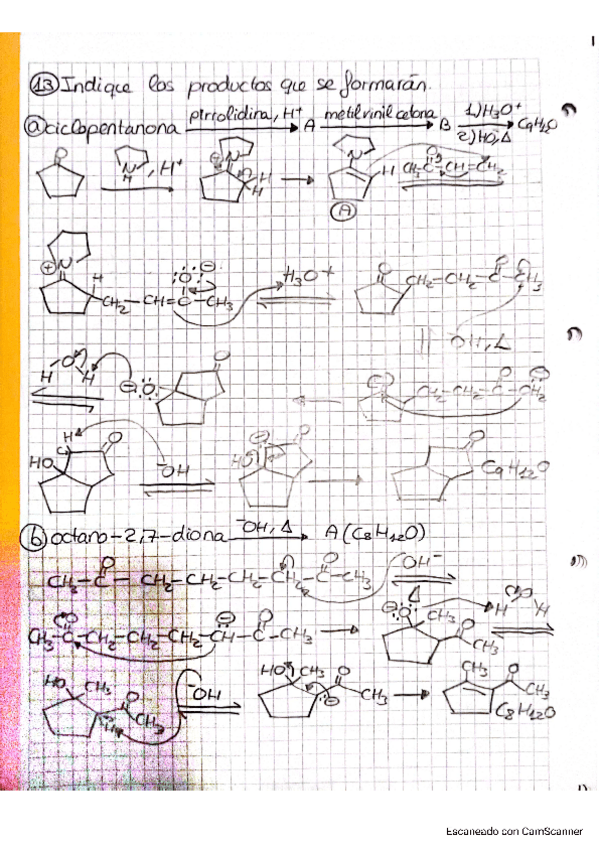 13 Indique los productos que se formarán.
a ciclopentanona pirrolidina, H+ A metilvinilcetona B 1) H3O+ 2) HO-, Δ C9H12O
O N H , H+ N + H H N H CH3-C-CH=CH2 O
A
N + H CH2-CH=C-CH3 O - H3O+ O CH2-CH2-C-CH3 O
-OH, Δ
H O H - O O O CH2-CH2-C-CH2 O -
HO H C O -OH HO - O O C9H12O
b octano-2,7-diona -OH, Δ A (C8H12O)
CH3-C-CH2-CH2-CH2-CH2-C-CH3 O O OH-
CH3-C-CH2-CH2-CH2-CH-C-CH3 O - O - O CH3 O CH3 H O H
HO CH3 O CH3 H -OH HO CH3 O - CH3 CH3 O CH3
C8H12O
Escaneado con CamScanner